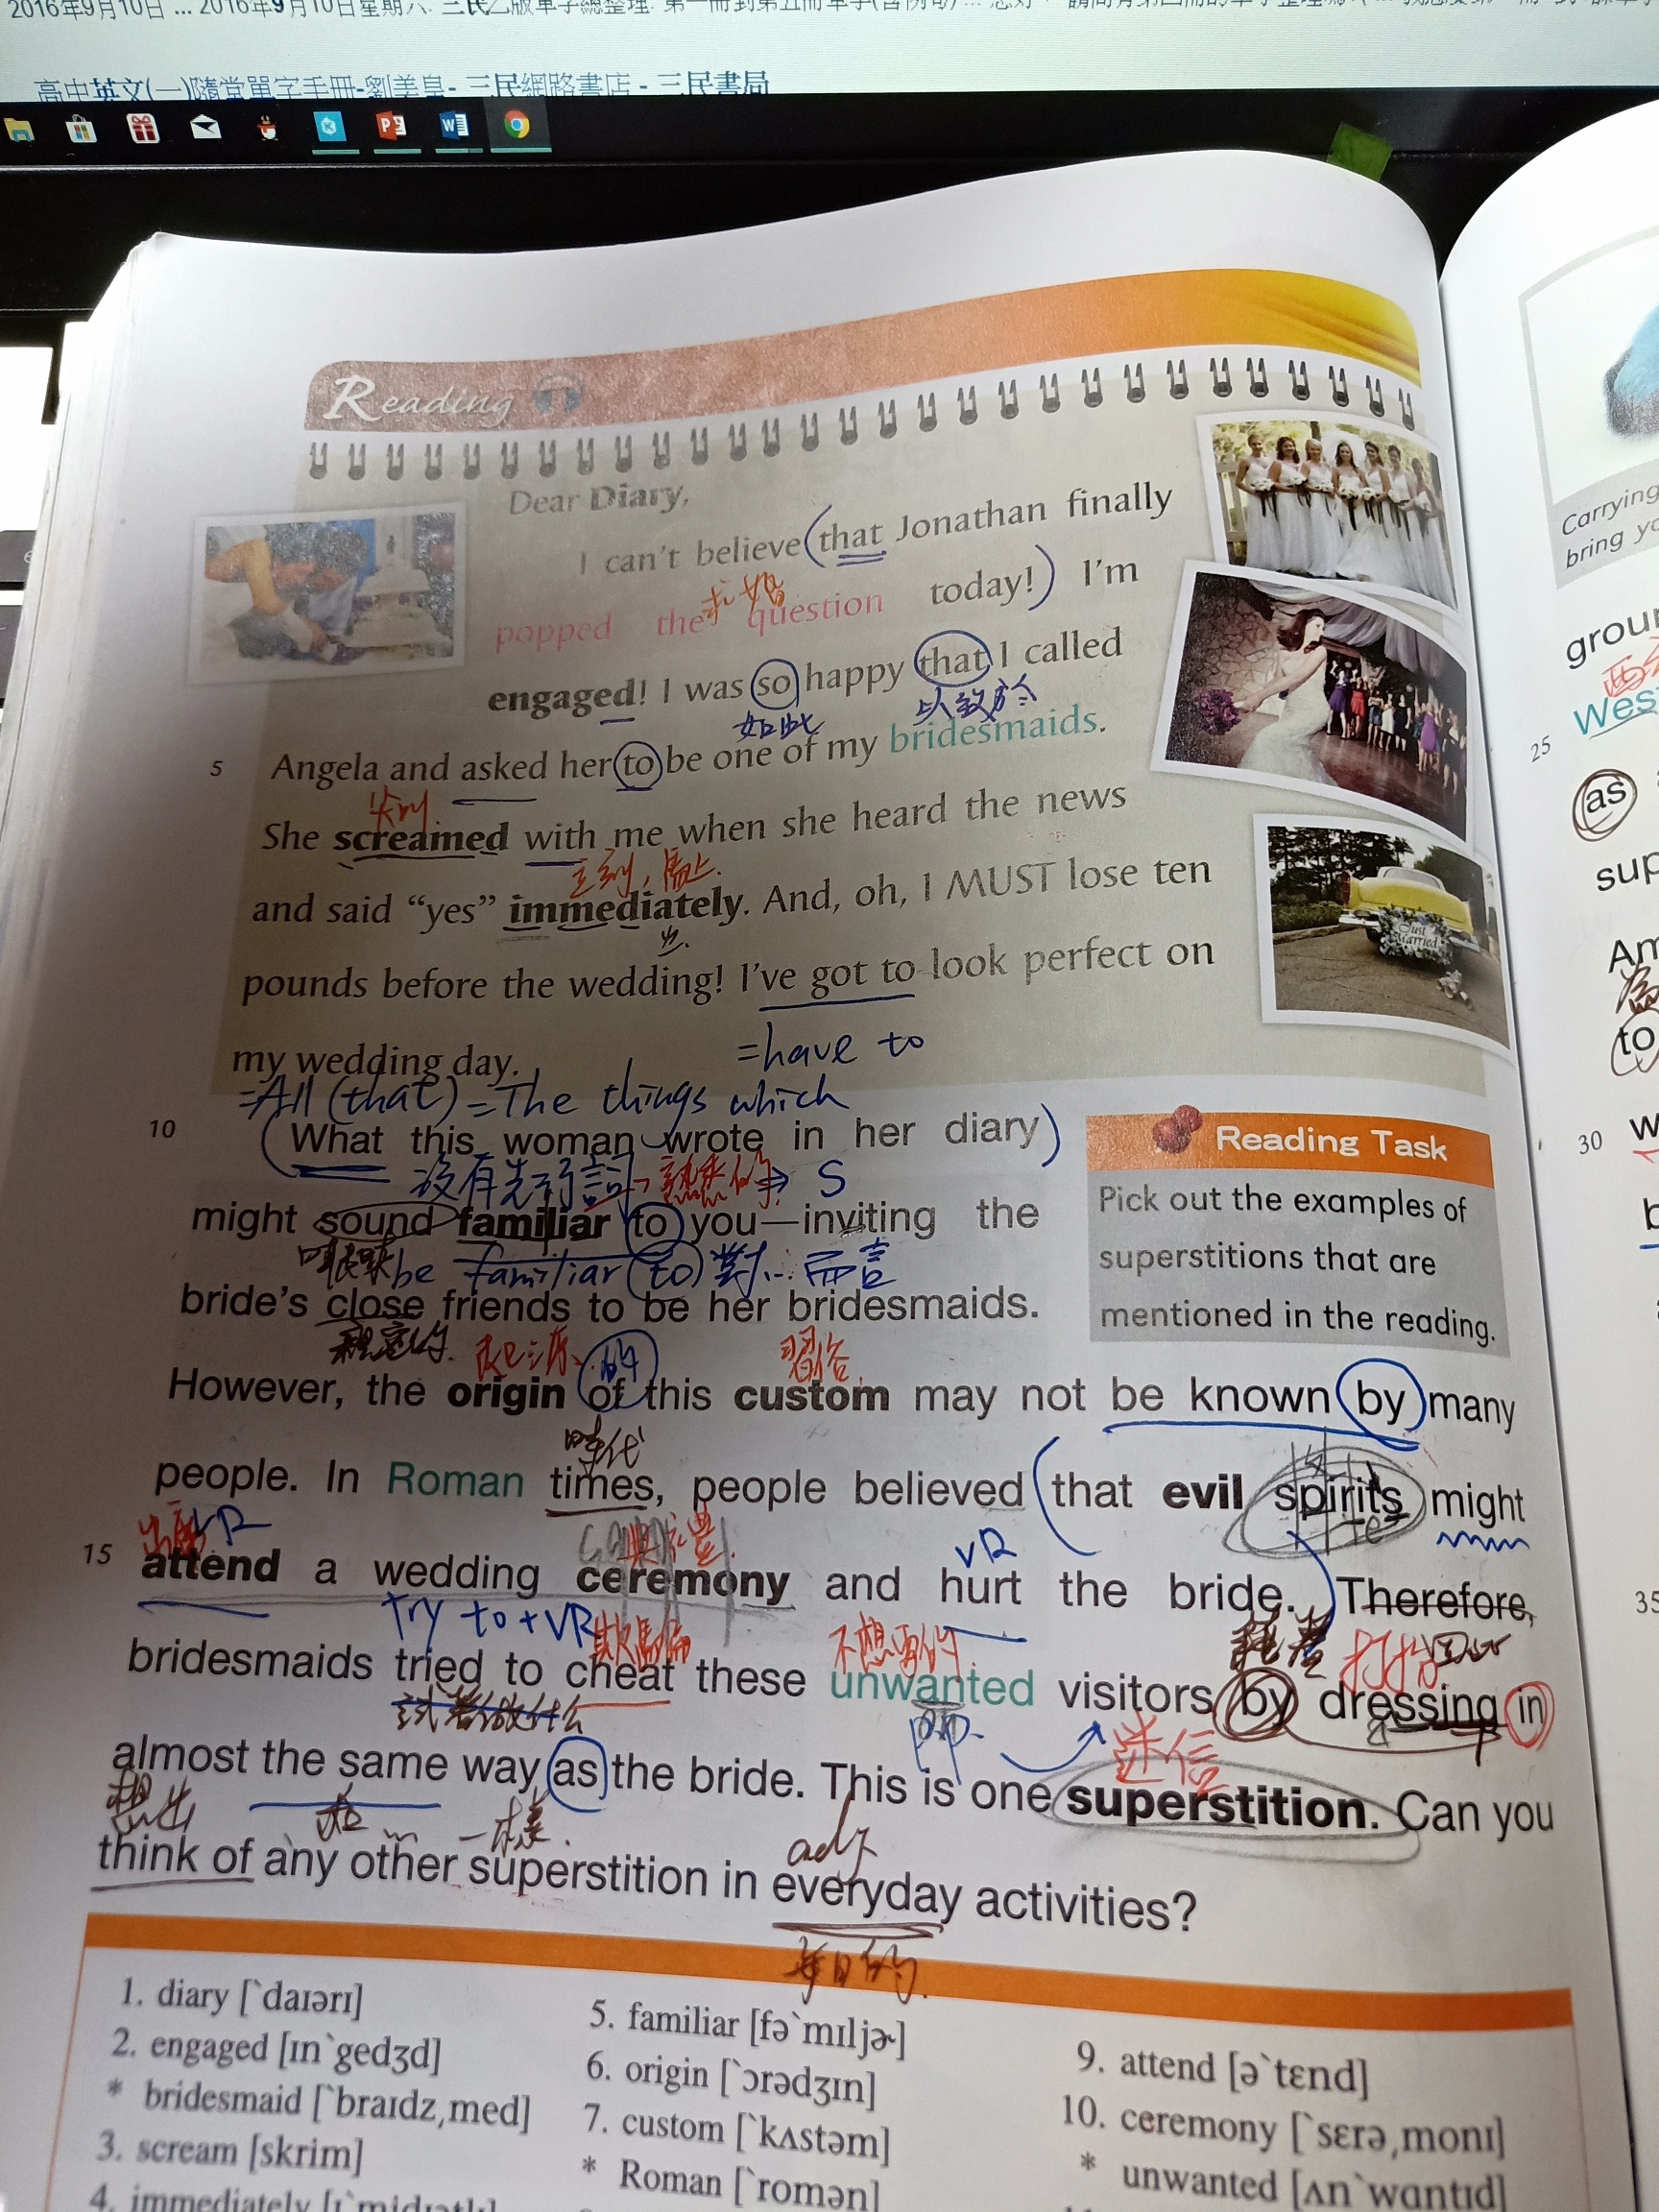 高中英文(一)隨堂單字手冊-劉美皇- 三民網路書店 - 三民書局
Reading
Dear Diary,
I can't believe (that Jonathan finally
求婚
popped the question today!) I'm
engaged! I was so happy that I called
如此 以致於
5 Angela and asked her to be one of my bridesmaids.
尖叫
She screamed with me when she heard the news
立刻，馬上
and said "yes" immediately. And, oh, I MUST lose ten
pounds before the wedding! I've got to look perfect on
=have to
my wedding day.
=All (that) =The things which
10 (What this woman wrote in her diary)
沒有先行詞 熟悉的 ⇒ S
might sound familiar to you—inviting the
be familiar (to) 對...而言
bride's close friends to be her bridesmaids.
親密的 起源 的 習俗
However, the origin of this custom may not be known by many
時代
people. In Roman times, people believed (that evil spirits might
出席 VR 典禮 VR
15 attend a wedding ceremony and hurt the bride.) Therefore,
try to + VR 欺騙 不想要的 打扮
bridesmaids tried to cheat these unwanted visitors by dressing in
試著做什么 迷信
almost the same way as the bride. This is one superstition. Can you
想出 和... 一樣. adj
think of any other superstition in everyday activities?
每日的
Reading Task
Pick out the examples of
superstitions that are
mentioned in the reading.
1. diary [ˋdaɪərɪ]
2. engaged [ɪnˋgedʒd]
* bridesmaid [ˋbraɪdz͵med]
3. scream [skrim]
4. immediately [ɪˋmidɪətlɪ]
5. familiar [fəˋmɪljɚ]
6. origin [ˋɔrədʒɪn]
7. custom [ˋkʌstəm]
* Roman [ˋromən]
9. attend [əˋtɛnd]
10. ceremony [ˋsɛrə͵monɪ]
* unwanted [ʌnˋwɑntɪd]
Carrying
bring
25
as
30
to
35